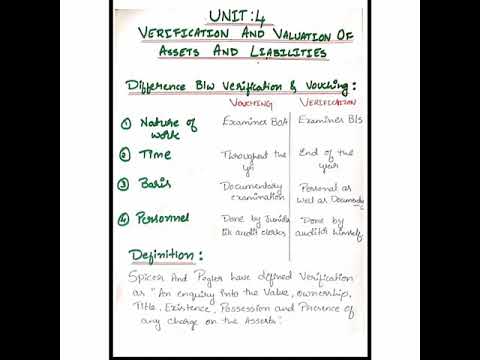 UNIT:4
VERIFICATION AND VALUATION OF
ASSETS AND LIABILITIES
Difference B/w Verification & Vouching:
VOUCHING VERIFICATION
① Nature of work Examines BOA Examines B/S
② Time Throughout the yr End of the year
③ Basis Documentary examination Personal as well as Documenty
④ Personnel Done by Junior audit clerks Done by auditor himself
Definition:
Spicer And Pegler have defined Verification
as "An enquiry into the Value, ownership,
Title, Existence, Possession and Presence of
any charge on the Assets".